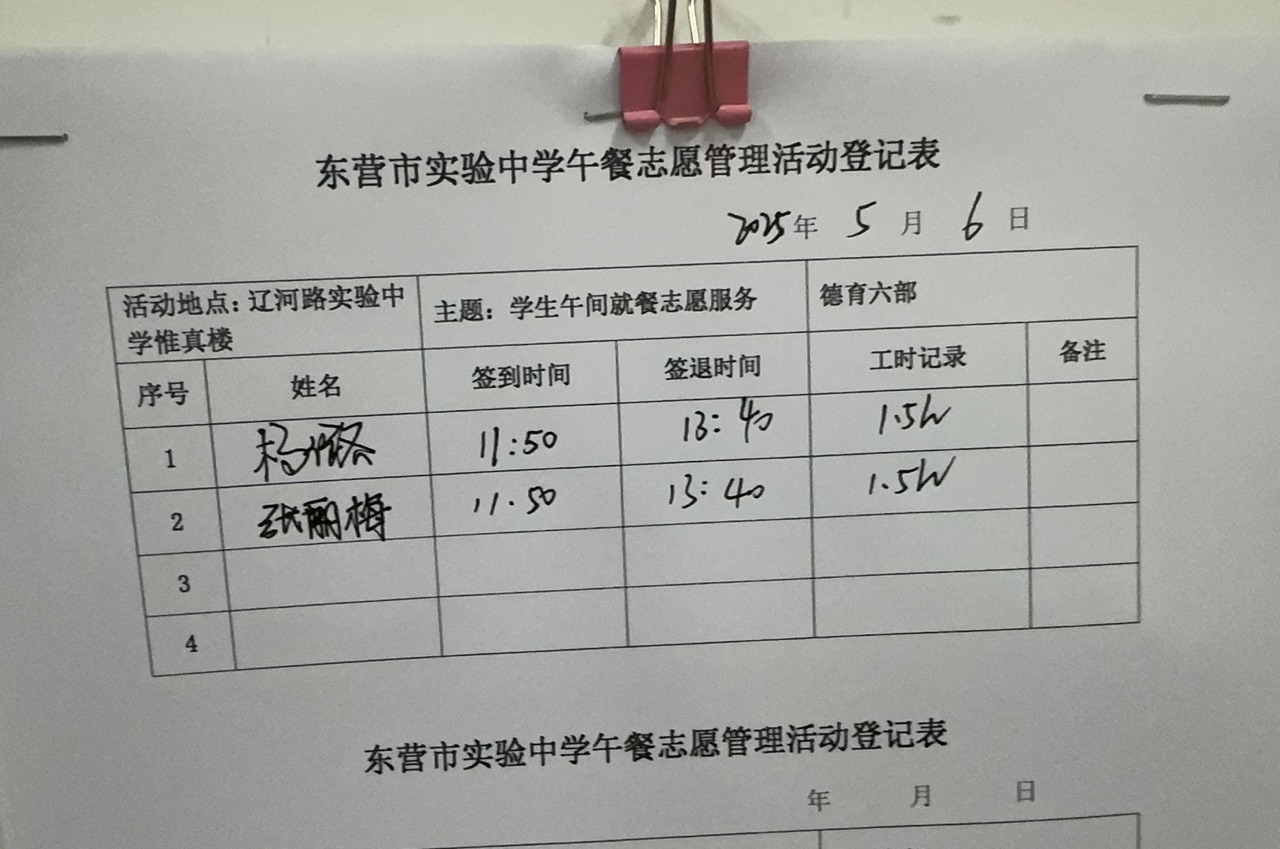 东营市实验中学午餐志愿管理活动登记表
2025年 5 月 6 日
活动地点：辽河路实验中
学惟真楼
主题：学生午间就餐志愿服务
德育六部
序号 姓名 签到时间 签退时间 工时记录 备注
1 杨 11:50 13:40 1.5h
2 张丽梅 11.50 13:40 1.5h
3
4
东营市实验中学午餐志愿管理活动登记表
年 月 日